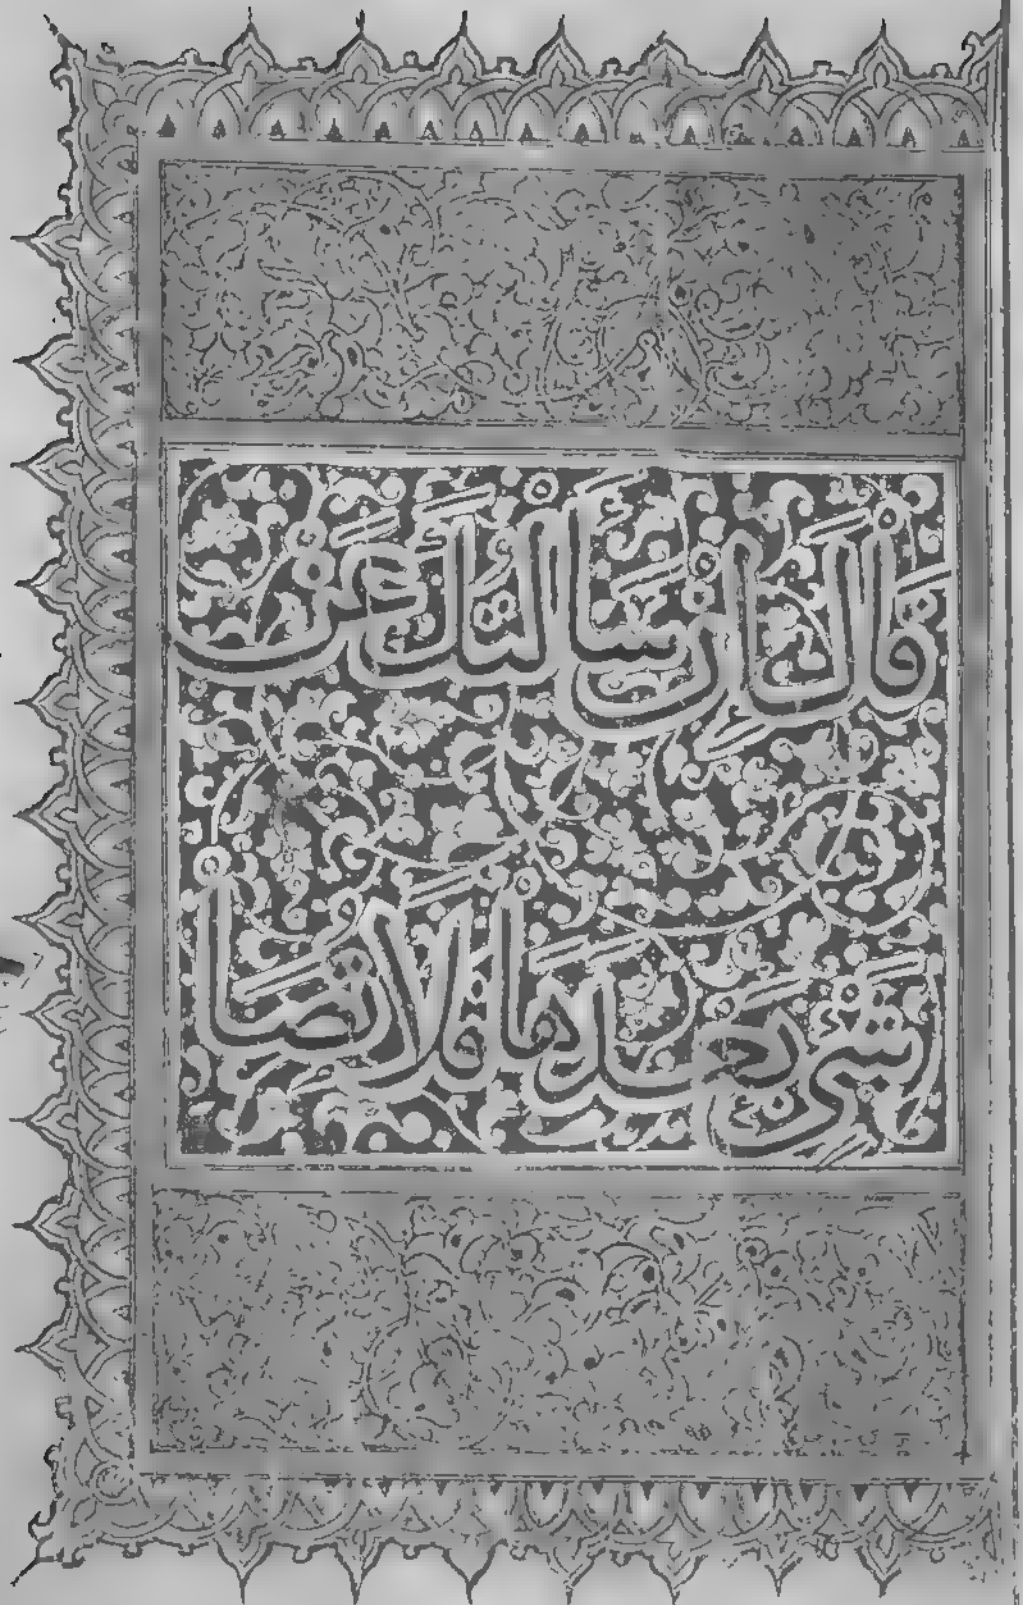 قَالَ إِنْ سَأَلْتُكَ عَنْ
شَيْءٍ بَعْدَهَا فَلَا تُصَا